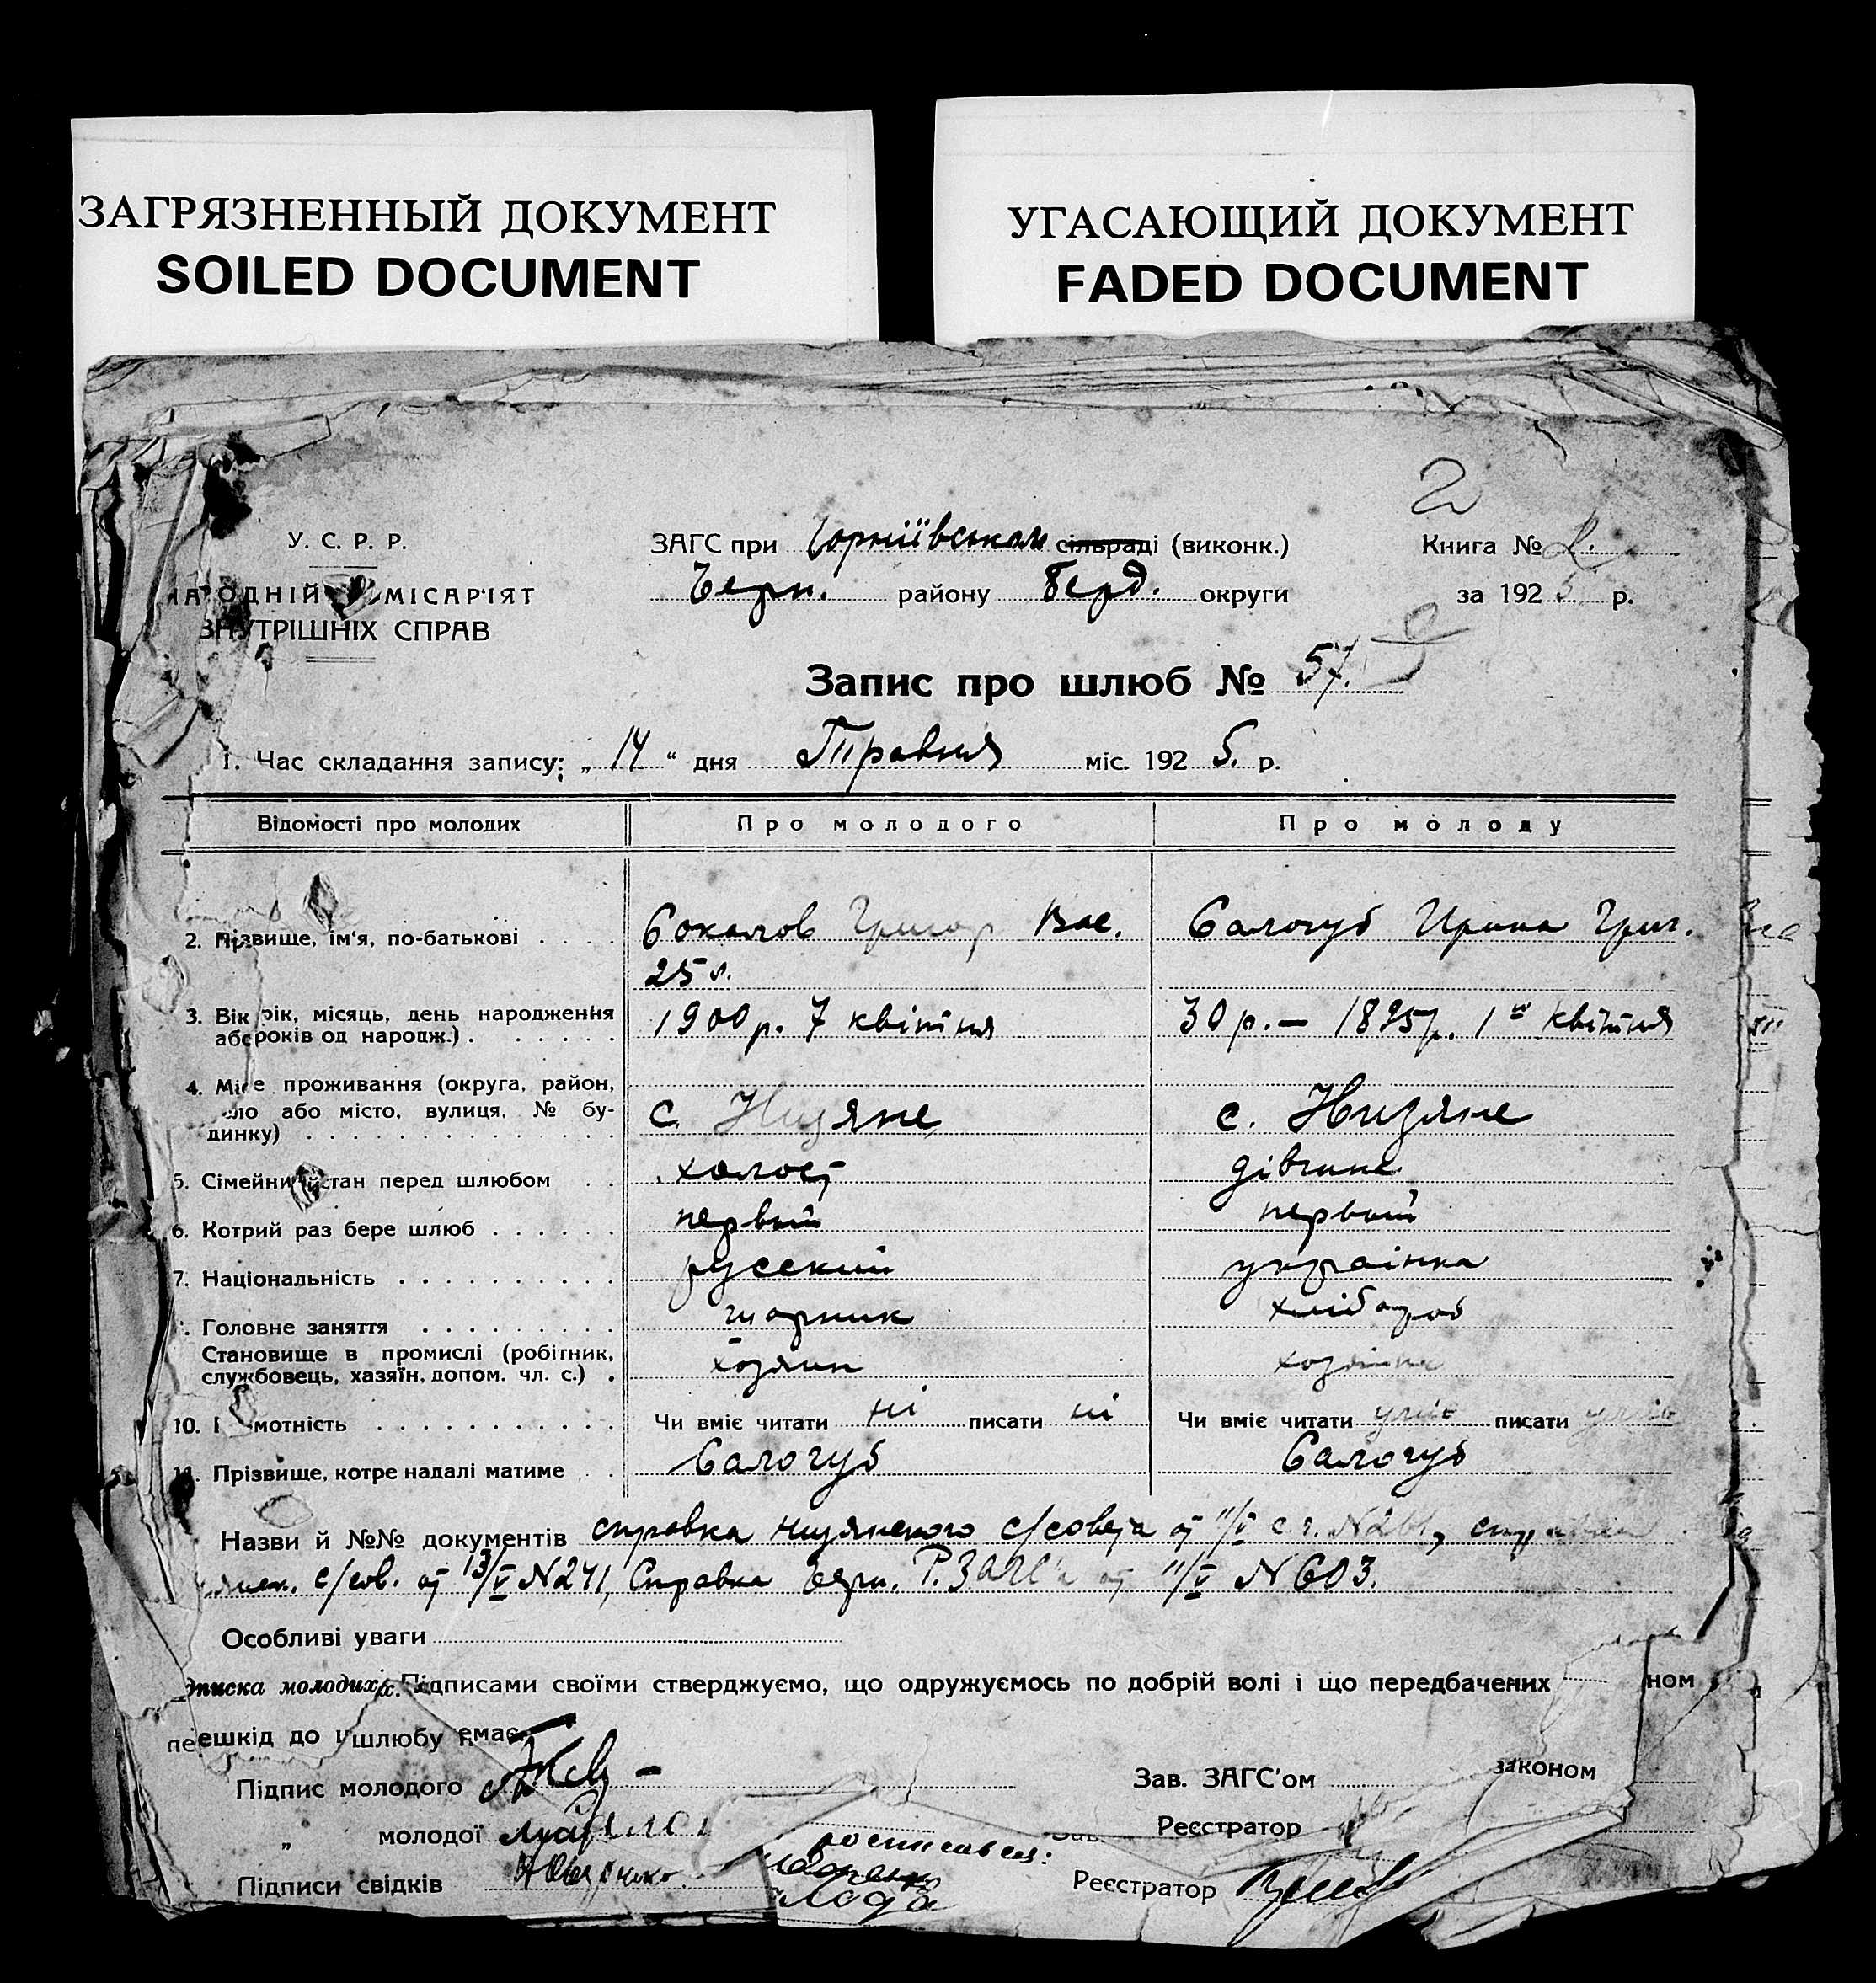 ЗАГРЯЗНЕННЫЙ ДОКУМЕНТ
SOILED DOCUMENT
УГАСАЮЩИЙ ДОКУМЕНТ
FADED DOCUMENT
2
У. С. Р. Р.
МІСАРІЯТ
ВНУТРІШНІХ СПРАВ
ЗАГС при сільраді (виконк.)
району Берд. округи
Книга №
за 192 р.
Запис про шлюб № 57.
1. Час складання запису: „ 14 “ дня Травня міс. 192 5. р.
Відомості про молодих Про молодого Про молоду
2. Прізвище, ім'я, по-батькові Соколов Григор Вас. Салогуб Ирина Григ.
25 л.
3. Вік рік, місяць, день народження 1900 р. 7 квітня 30 р. – 1895 р. 1го квітня
або років од народж.)
4. Місце проживання (округа, район,
село або місто, вулиця, № бу- с. Низяне с. Низяне
динку)
5. Сімейний стан перед шлюбом холост дівчина
6. Котрий раз бере шлюб первый первый
7. Національність русский українка
Головне заняття шорник хлібороб
Становище в промислі (робітник, хозяин хозяйка
службовець, хазяїн, допом. чл. с.)
10. мотність Чи вміє читати ні писати ні Чи вміє читати уміє писати уміє
11. Прізвище, котре надалі матиме Салогуб Салогуб
Назви й №№ документів справка низянского с/совета от 11/V с.г.
с/сов. от 13/V N 241, Справка от 11/V N 603.
Особливі уваги
молодих. Підписами своїми стверджуємо, що одружуємось по добрій волі і що передбачених ном
перешкід до шлюбу немає
законом
Підпис молодого Зав. ЗАГС'ом
„ молодої Реєстратор
Підписи свідків Реєстратор